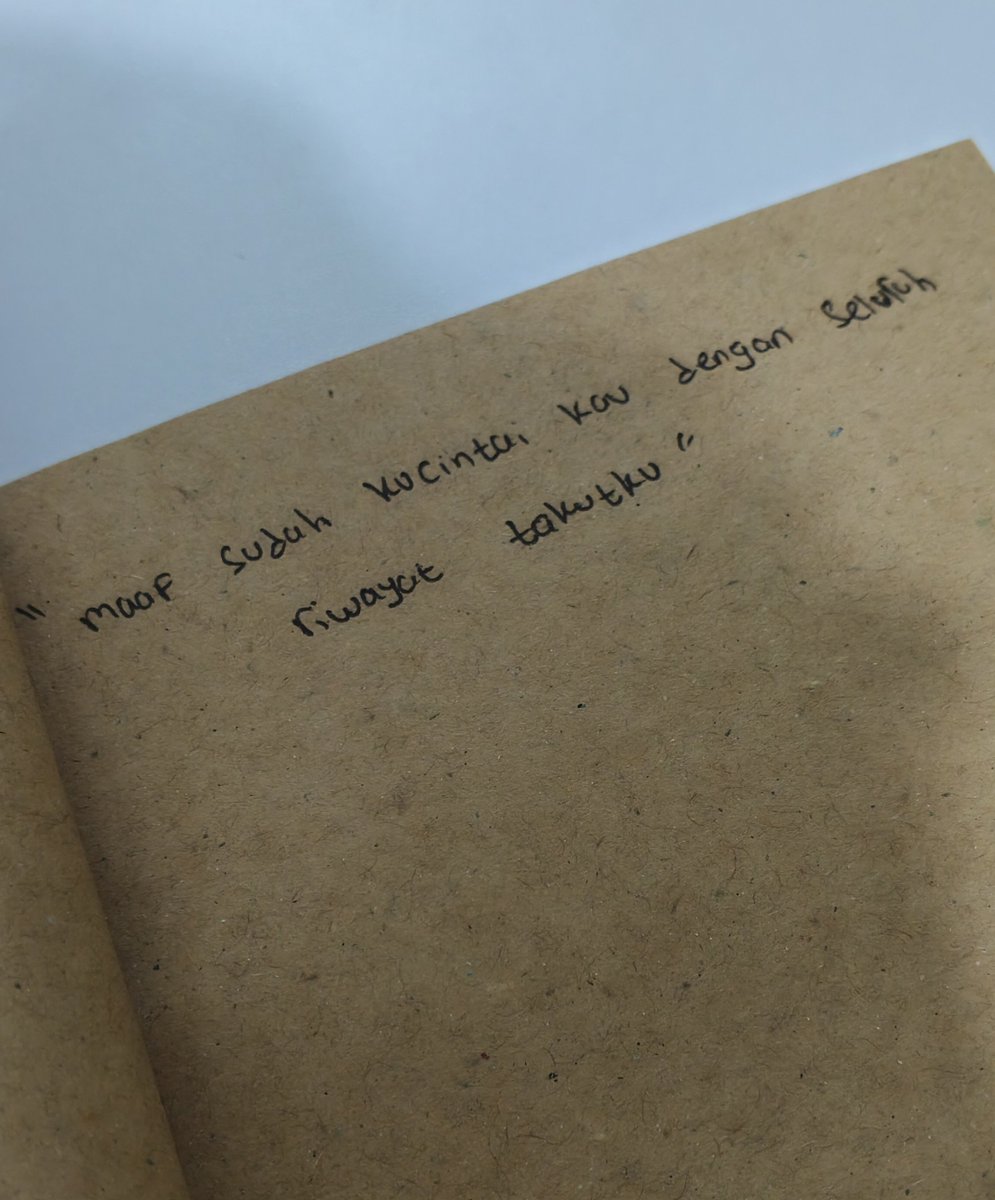 "maaf sudah kucintai kau dengan seluruh
riwayat takutku"